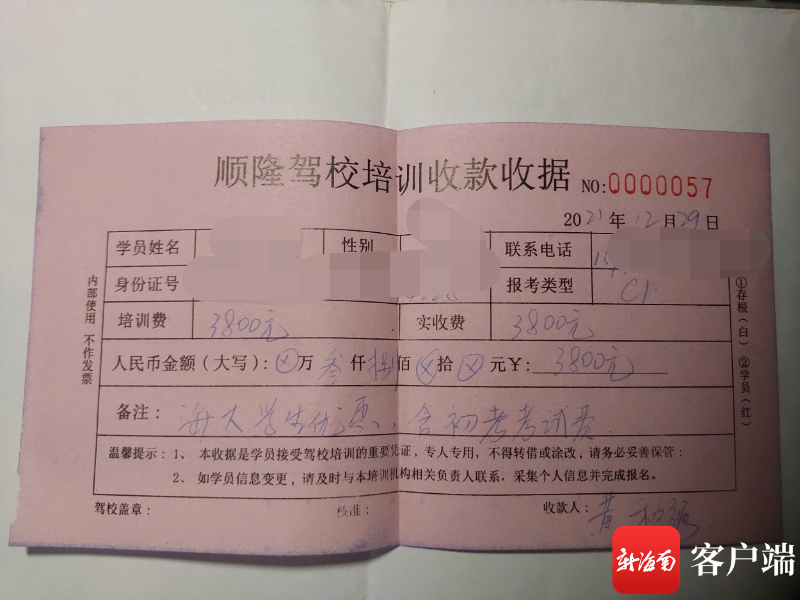 顺隆驾校培训收款收据 NO:0000057
2021年12月29日
学员姓名 性别 联系电话
身份证号 报考类型 C1
培训费 3800元 实收费 3800元
人民币金额（大写）:⊗万叁仟捌佰⊗拾⊗元¥:3800元
备注: 海大学生优惠，含初考考试费
温馨提示：1、本收据是学员接受驾校培训的重要凭证，专人专用，不得转借或涂改，请务必妥善保管；
2、如学员信息变更，请及时与本培训机构相关负责人联系，采集个人信息并完成报名。
驾校盖章： 核准： 收款人： 黄
内部使用 不作发票
①存根（白）②学员（红）
新海南 客户端